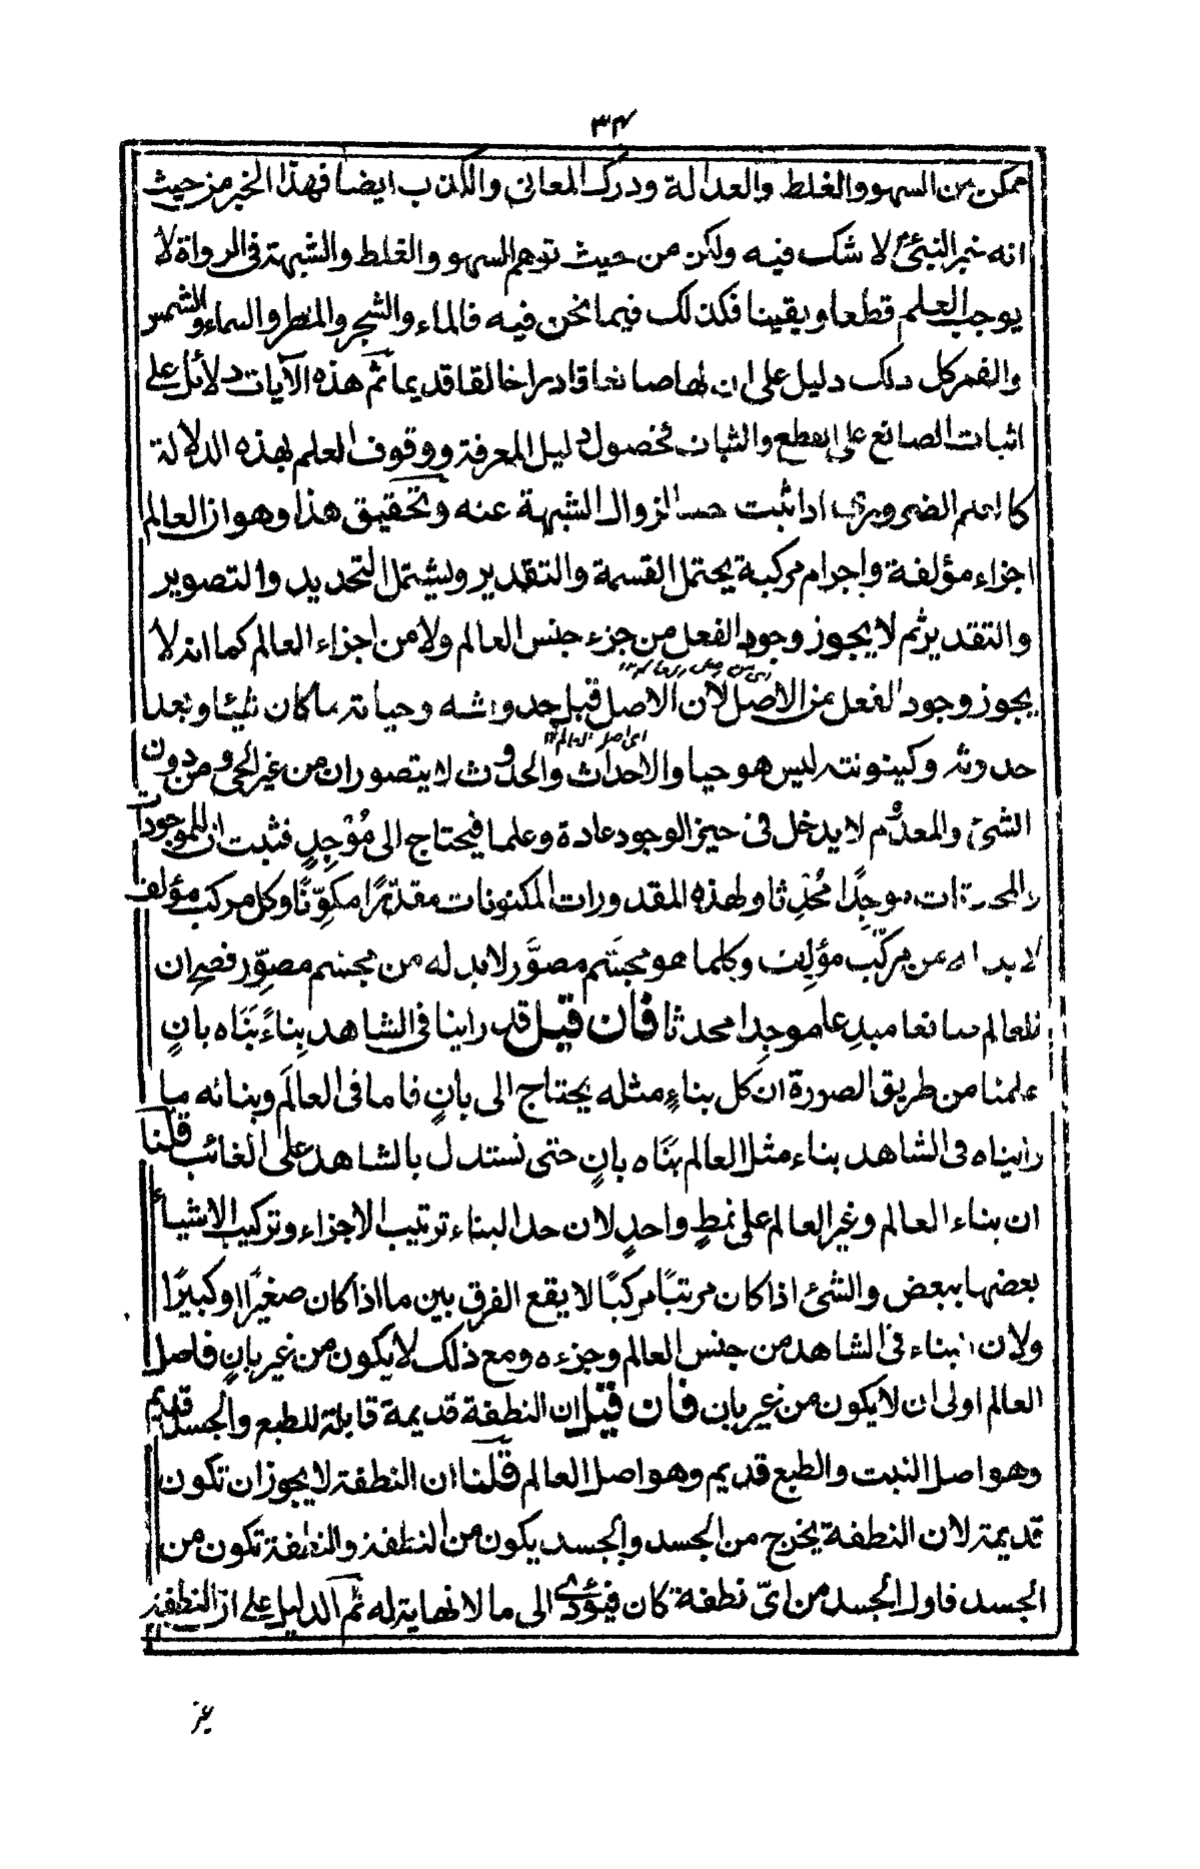 ٣٤
ممكن من السهو والغلط والعدالة ودرك المعانى والكذب ايضا فهذا الخبر من حيث
انه خبر النبىّ لا شك فيه ولكن من حيث توهم السهو والغلط والشبهة فى الرواة لا
يوجب العلم قطعا ويقينا فكذلك فيما نحن فيه فالماء والشجر والمطر والسماء والشمس
والقمر كل ذلك دليل على ان لها صانعا قادرا خالقا قديما ثم هذه الآيات دلائل على
اثبات الصانع على القطع والثبات لحصول دليل المعرفة ووقوف العلم بهذه الدلالة
كالعلم الضرورى اذا ثبت حسا لزوال الشبهة عنه وتحقيق هذا وهو ان العالم
اجزاء مؤلفة واجرام مركبة يحتمل القسمة والتقدير ويشتمل التحديد والتصوير
والتقدير ثم لا يجوز وجود الفعل من جزء جنس العالم ولا من اجزاء العالم كما انه لا
يجوز وجود الفعل من الاصل لان الاصل قبل حدوثه وحياته ما كان شيئا وبعد
اى اصل العالم ١٢
حدوثه وكينونته ليس هو حيا والاحداث والحدوث لا يتصوران من غير الحى ومن دون
الشئ والمعدوم لا يدخل فى حيز الوجود عادة وعلما فيحتاج الى مُوْجِدٍ فثبت ان للموجودات
والمحدثات موجِدًا مُحْدِثا ولهذه المقدورات المكنونات مقدّرًا مكوِّنًا وكل مركب مؤلف
لا بد له من مركّب مؤلِف وكلما هو مجسَّم مصوَّر لا بد له من مجسِّم مصوِّر فصح ان
للعالم صانعا مبدِعا موجِدا محدثا فان قيل قد راينا فى الشاهد بِناءً بَنَاه بانٍ
علمنا من طريق الصورة ان كل بناءٍ مثله يحتاج الى بانٍ فاما فى العالَم وبنائه ما
رأيناه فى الشاهد بناء مثل العالم بَنَاه بانٍ حتى نستدل بالشاهد على الغائب قلنا
ان بناء العالم وغير العالم على نمطٍ واحدٍ لان حد البناء ترتيب الاجزاء وتركيب الاشياء
بعضها ببعض والشئ اذا كان مرتبًا مركبًا لا يقع الفرق بين ما اذا كان صغيرًا او كبيرًا
ولان البناء فى الشاهد من جنس العالم وجزءه ومع ذلك لا يكون من غير بانٍ فاصل
العالم اولى ان لا يكون من غير بان فان قيل ان النطفة قديمة قابلة للطبع والجسد قديم
وهو اصل النبت والطبع قديم وهو اصل العالم قلنا ان النطفة لا يجوز ان تكون
قديمة لان النطفة يخرج من الجسد والجسد يكون من النطفة والنطفة تكون من
الجسد فاول الجسد من اىّ نطفة كان فيؤدى الى ما لا نهاية له ثم الدليل على ان النطفة
غير